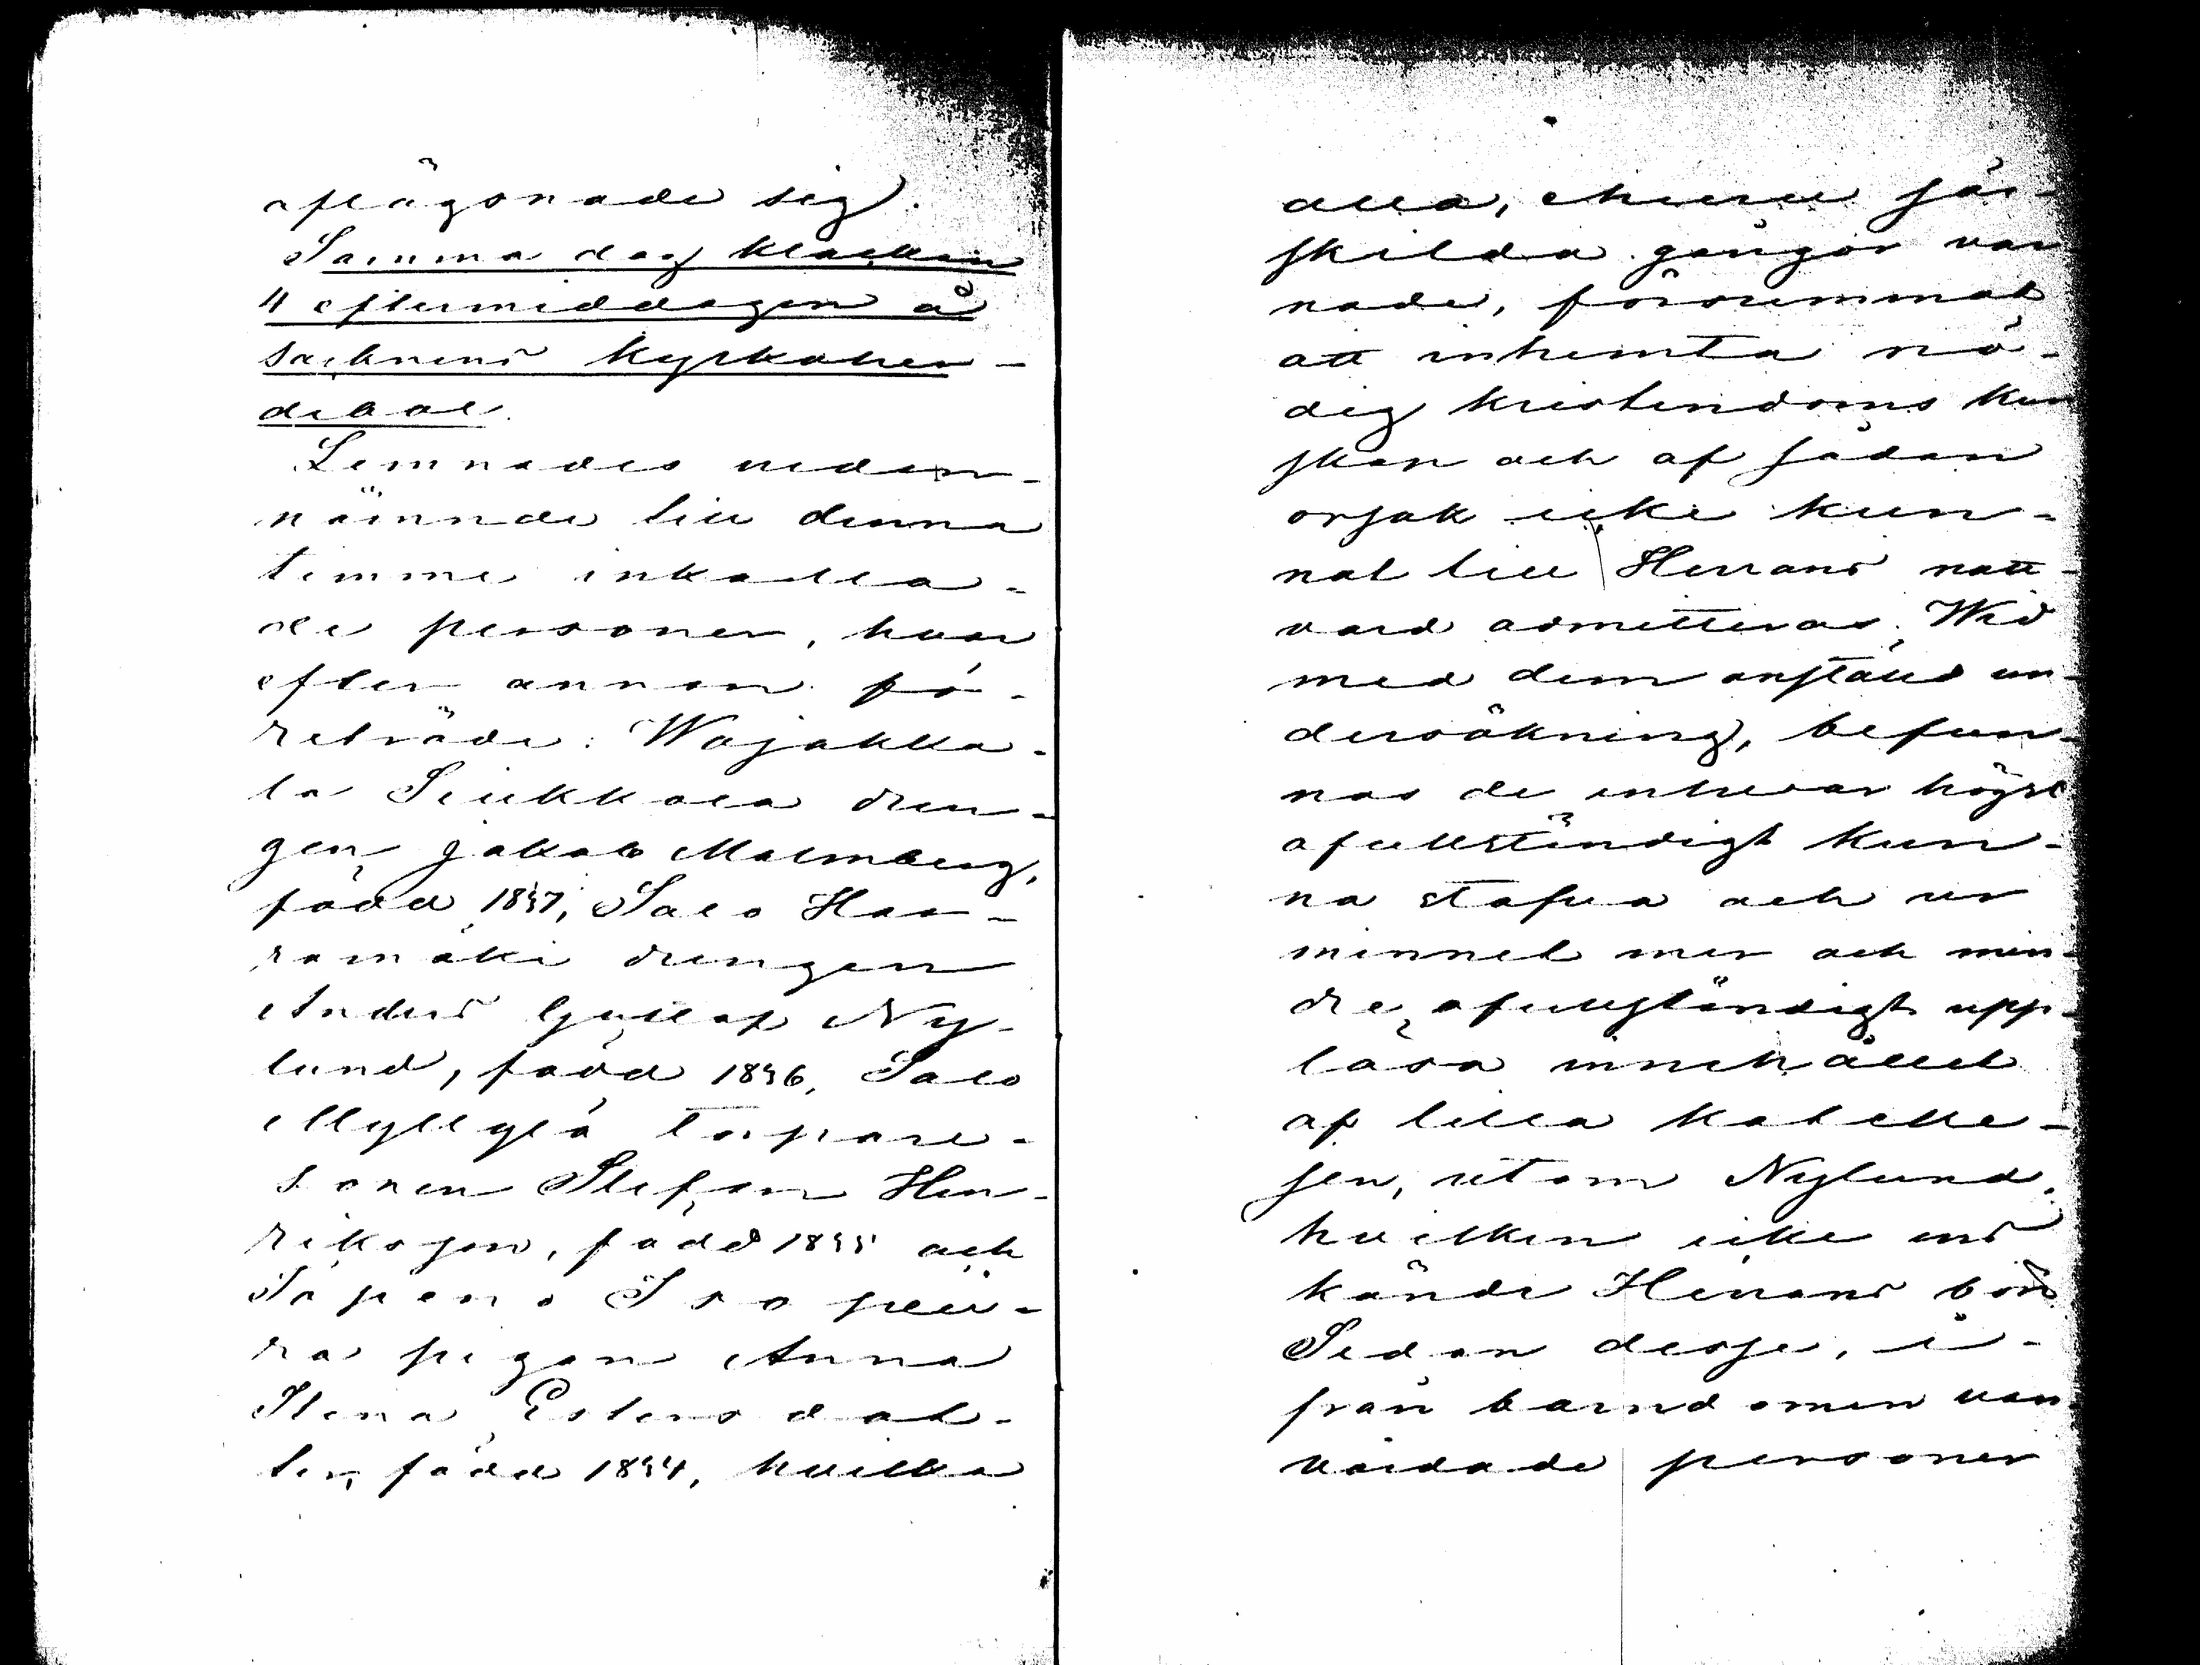 aflägsnade sig.
Samma dag klockan
4 eftermiddagen å
socknens kyrkoher-
debol.
Lemnades nedan-
nämnde till denna
timme inkalla-
de personer, hvar
efter annan fö-
reträde: Wojakka-
la Siukkola dren-
gen Jakob Malmberg,
född 1857, Salo Haa-
ramäki drengen
Anders Gustaf Ny-
lund, född 1856, Salo
Myllylä torpare-
sonen Stefan Hen-
riksson, född 1855 och
Iso
ra pigan Anna
Stina Esters dot-
ter, född 1854, hvilka
alla, ehuru sär-
skilda gånger var-
nade, försummat
att inhemta nö-
dig kristendoms kun
skap och af sådan
orsak icke kun-
nat till Herrans natt-
vard admitteras. Wid
med dem anstäld un-
dersökning, befun-
nos de enhvar högst
ofullständigt kun-
na stafva och ur
minnet mer och min-
dre ofullständigt upp-
läsa innehållet
af lilla kateke-
sen, utom Nylund,
hvilken icke ens
kände Herrans bön
Sedan desse, i-
från barndomen van-
vårdade personer